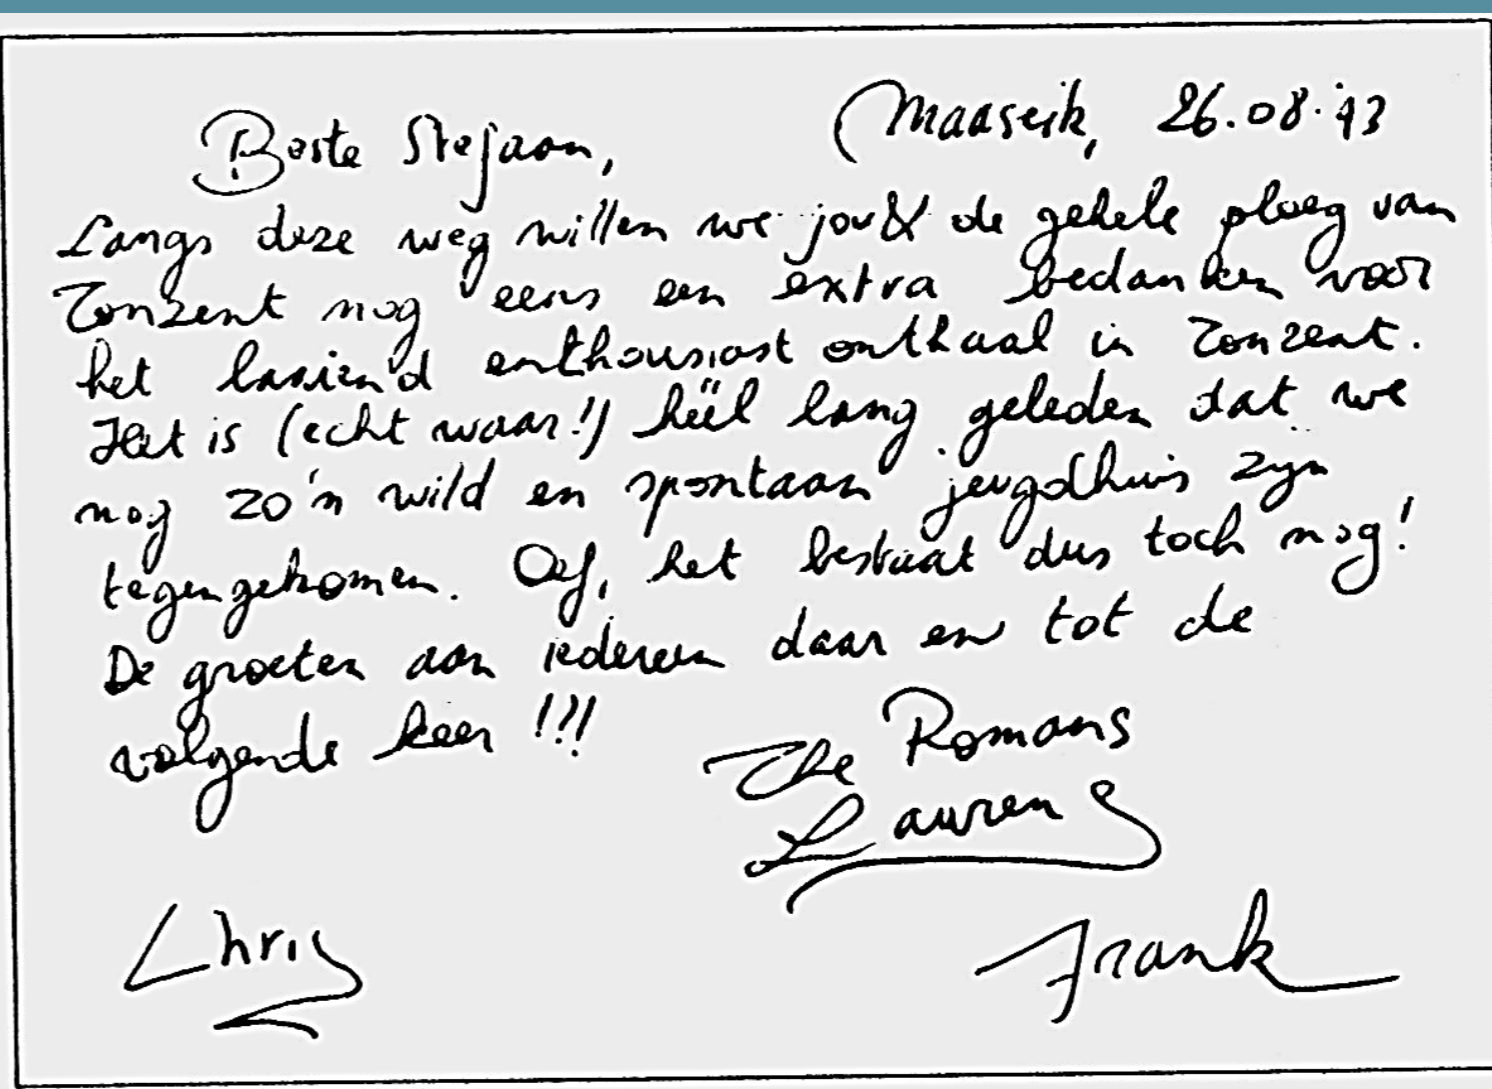 Beste Stefaan, Maaseik, 26.08.'93
Langs deze weg willen we jou & de gehele ploeg van
Tonzent nog eens een extra bedanken voor
het laaiend enthousiast onthaal in Tonzent.
Het is (echt waar!) héél lang geleden dat we
nog zo'n wild en spontaan jeugdhuis zijn
tegengekomen. Oef, het bestaat dus toch nog!
De groeten aan iedereen daar en tot de
volgende keer !!!
The Romans
Laurens
Chris
Frank